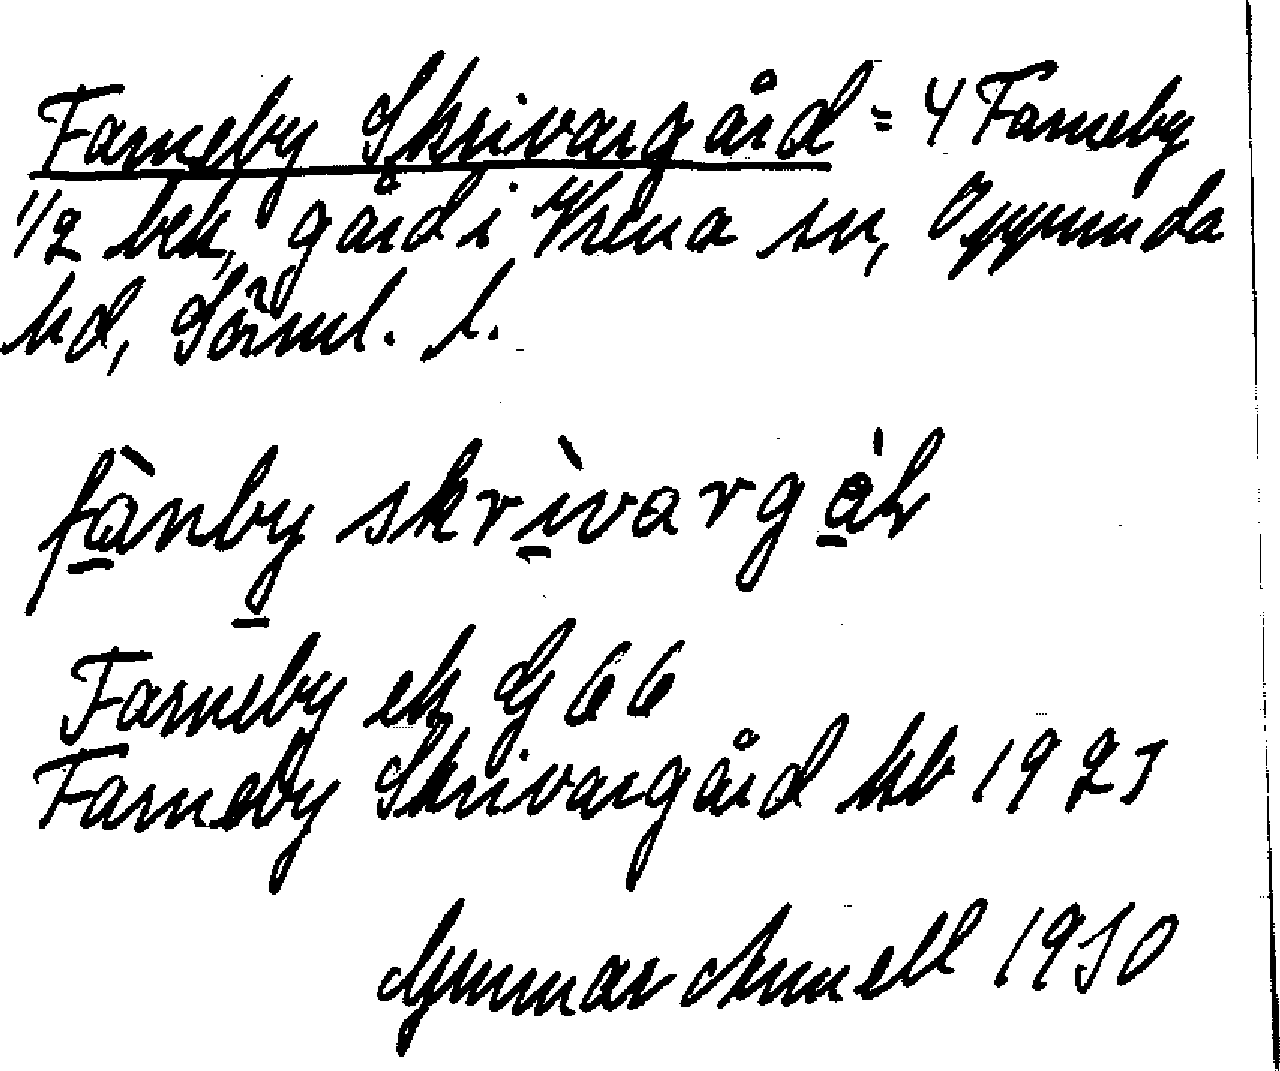 Farneby Skrivargård = 4 Farneby
1/2 beh, gård i Vrena sn, Oppunda
hd, Sörml. l.
fànby skrìvargáḷ
Farneby ek G 66
Farneby Skrivargård kb 1925
Gunnar Arnell 1930